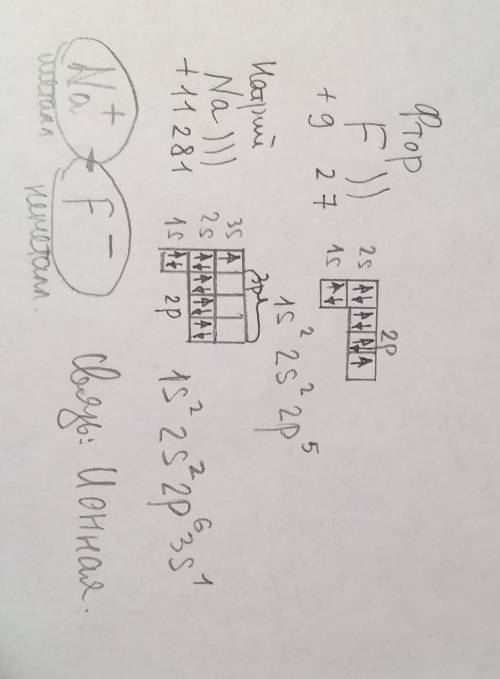 Фтор
F ))
+9 2 7
2s
1s
2p
1s² 2s² 2p⁵
Натрий
Na )))
+11 2 8 1
3s
2s
1s
3p
2p
1s² 2s² 2p⁶ 3s¹
Na⁺ F⁻
металл неметалл.
Связь: Ионная.